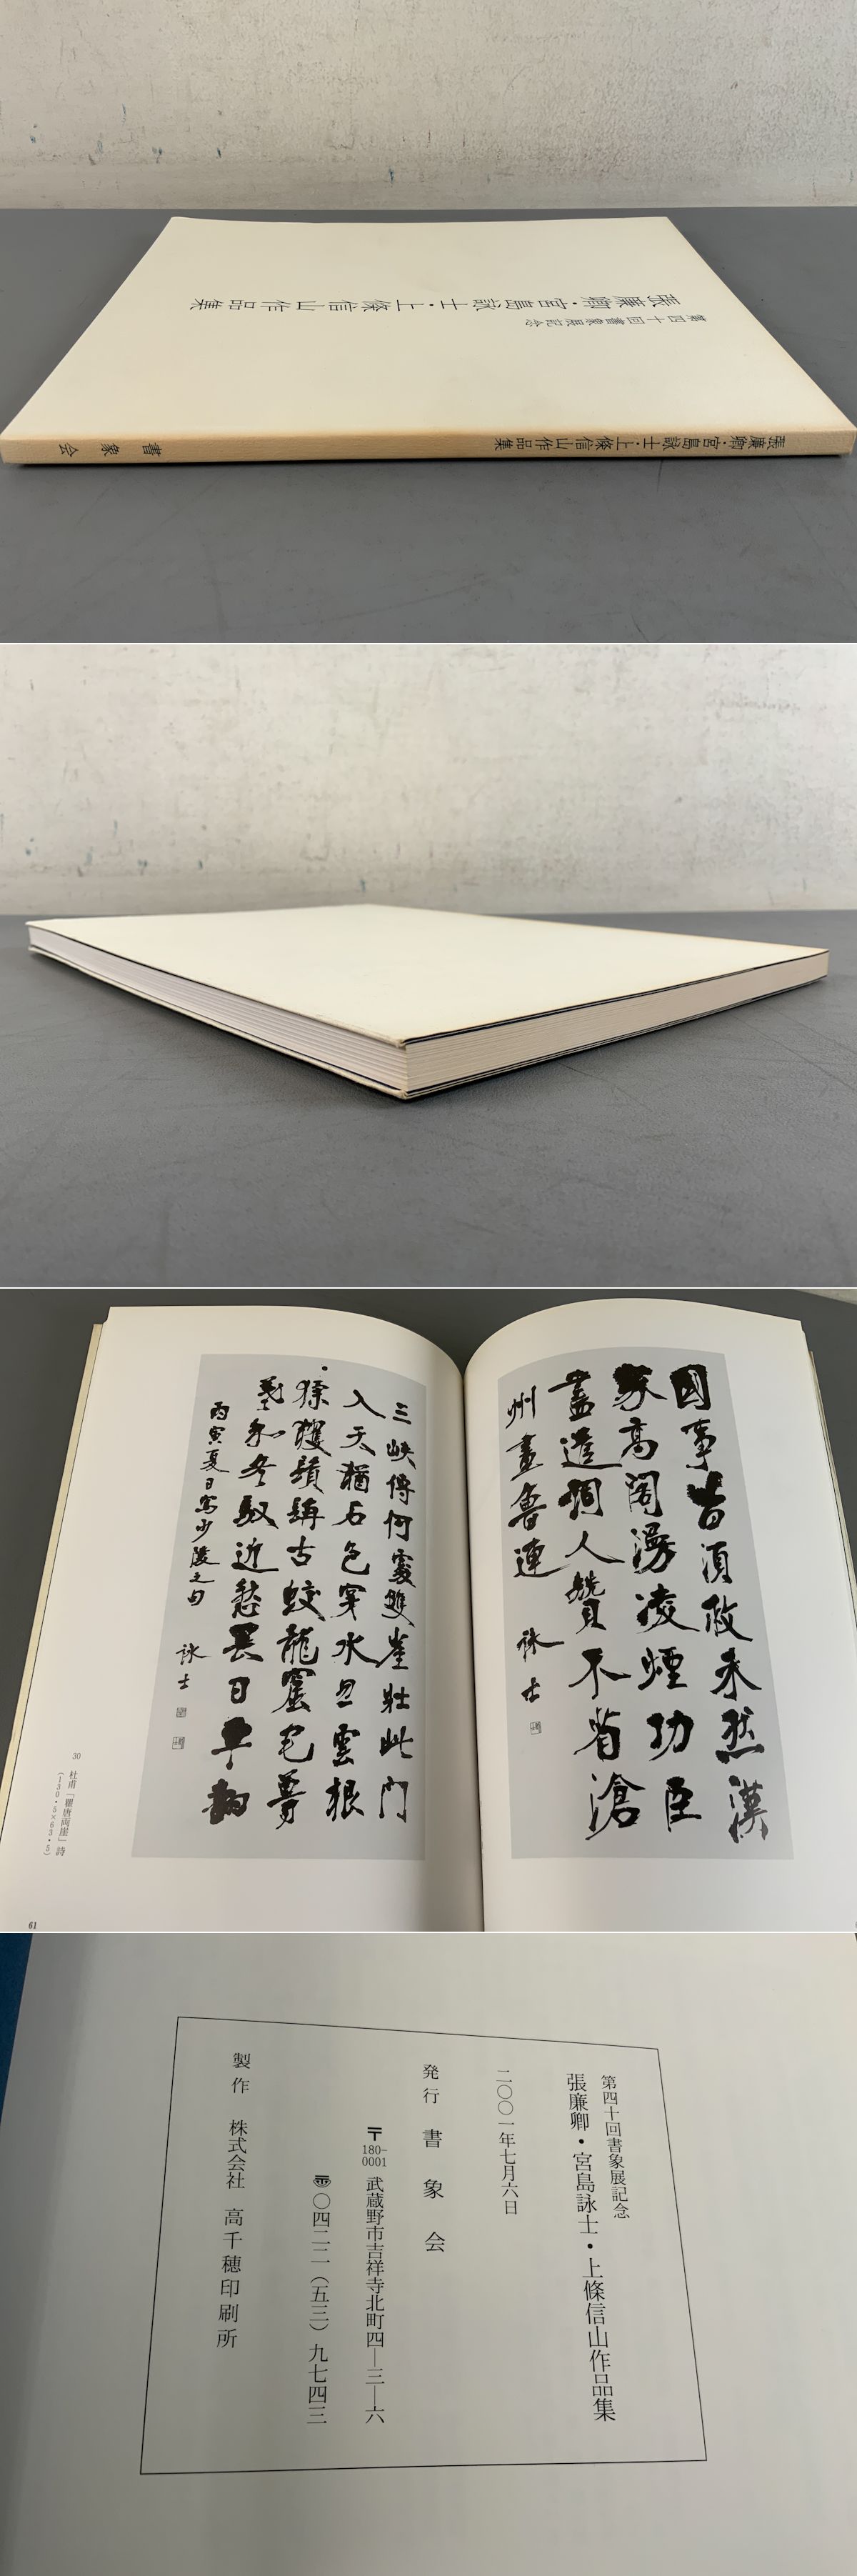 第四十回書象展記念
張廉卿・宮島詠士・上條信山作品集
張廉卿・宮島詠士・上條信山作品集 書象会
國事皆須救未然漢
家高閣漫凌煙功臣
盡道詞人贊不省滄
州畫魯連 詠士
三峽傳何處雙崖壯此門
入天猶石色穿水忽雲根
猱玃鬚髯古蛟龍窟宅尊
羲和冬馭近愁畏日車翻
丙寅夏日寫少陵之句
詠士
30 杜甫「瞿唐両崖」詩
(130・5×63・5)
61
第四十回書象展記念
張廉卿・宮島詠士・上條信山作品集
二〇〇一年七月六日
発行 書象会
〒180-0001 武蔵野市吉祥寺北町四―三―六
☎〇四二二（五三）九七四三
製作 株式会社 高千穂印刷所